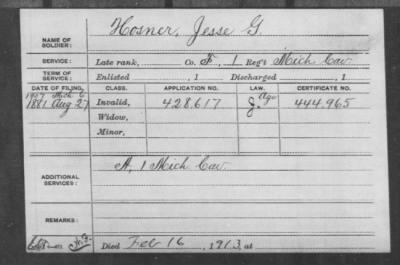 Hosner, Jesse G.
NAME OF SOLDIER:
SERVICE: Late rank, Co. F, 1 Reg't Mich Cav.
TERM OF SERVICE: Enlisted , 1 Discharged , 1
DATE OF FILING. CLASS. APPLICATION NO. LAW. CERTIFICATE NO.
1881 Aug 27 Invalid, 428.617 J. Age 444.965
Widow,
Minor,
A, 1 Mich Cav.
ADDITIONAL SERVICES:
REMARKS:
Died Feb 16, 1913, at